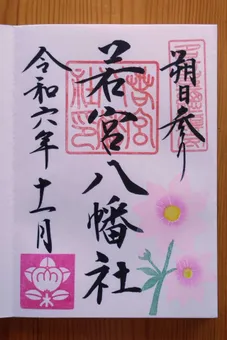 朔日参り
若宮八幡社
令和六年十一月